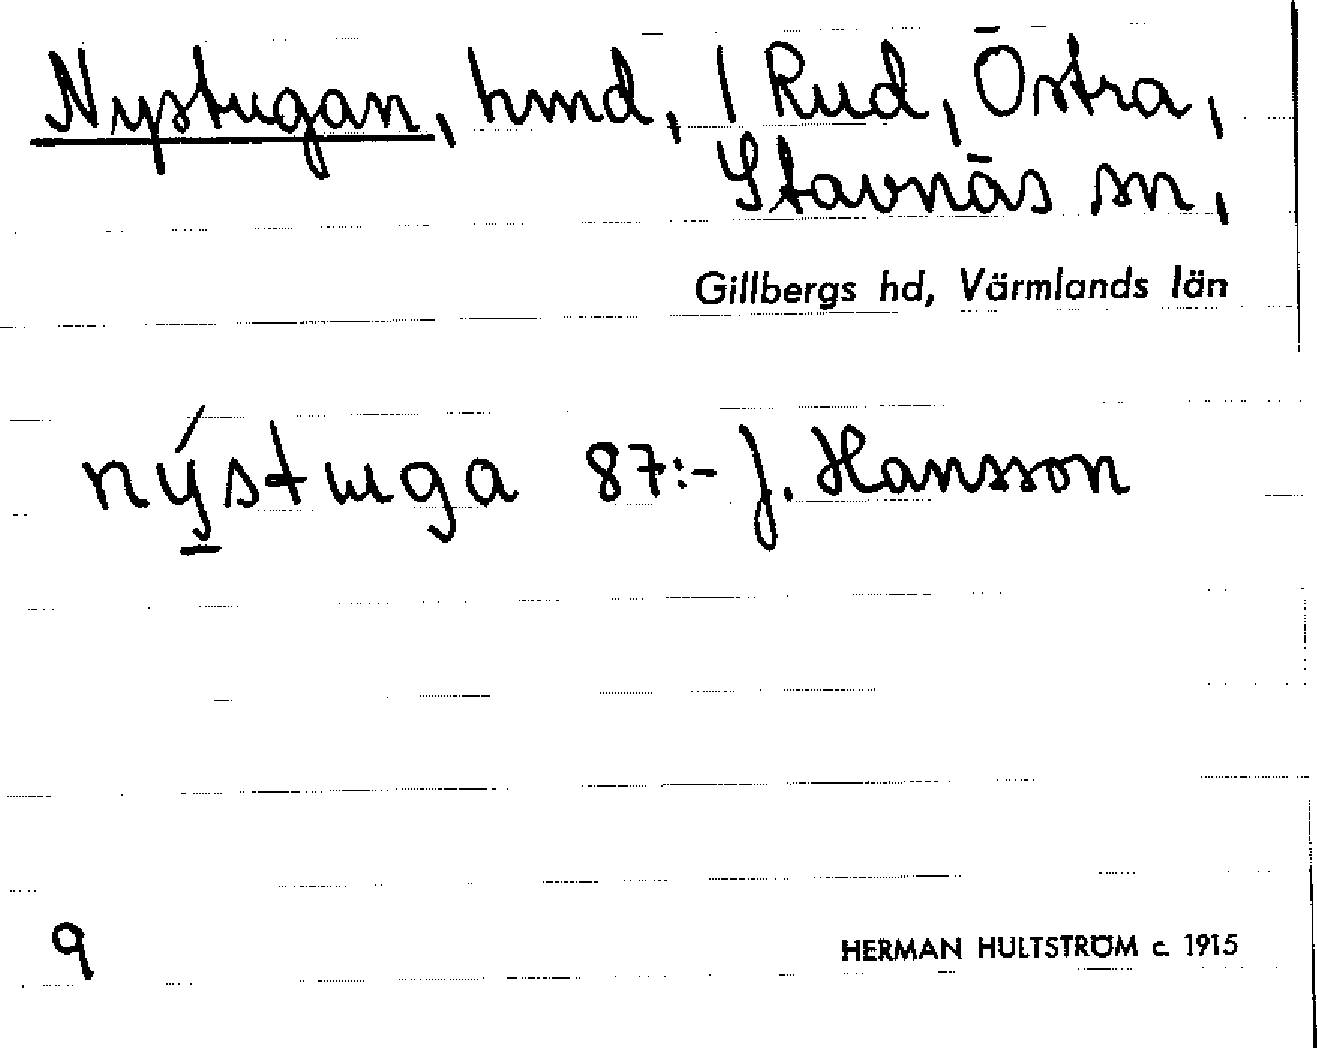 Nystugan, hmd, 1 Rud, Östra,
Stavnäs sn,
Gillbergs hd, Värmlands län
nýstuga 87:- J. Hansson
9
HERMAN HULTSTRÖM c. 1915